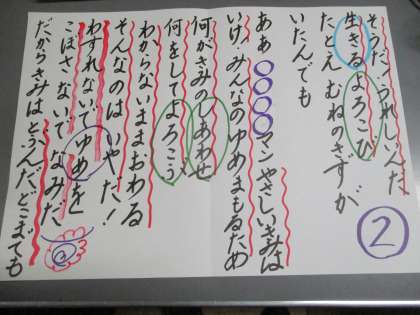 そうだ！うれしいんだ
生きるよろこび
たとえ むねのきずが
いたんでも
②
ああ ○○○マンやさしいきみは
いけ！みんなのゆめまもるため
何がきみのしあわせ
何をしてよろこぶ
わからないままおわる
そんなのは いやだ！
わすれないで ゆめを
こぼさないで なみだ
だからきみはとぶんだ、どこまでも